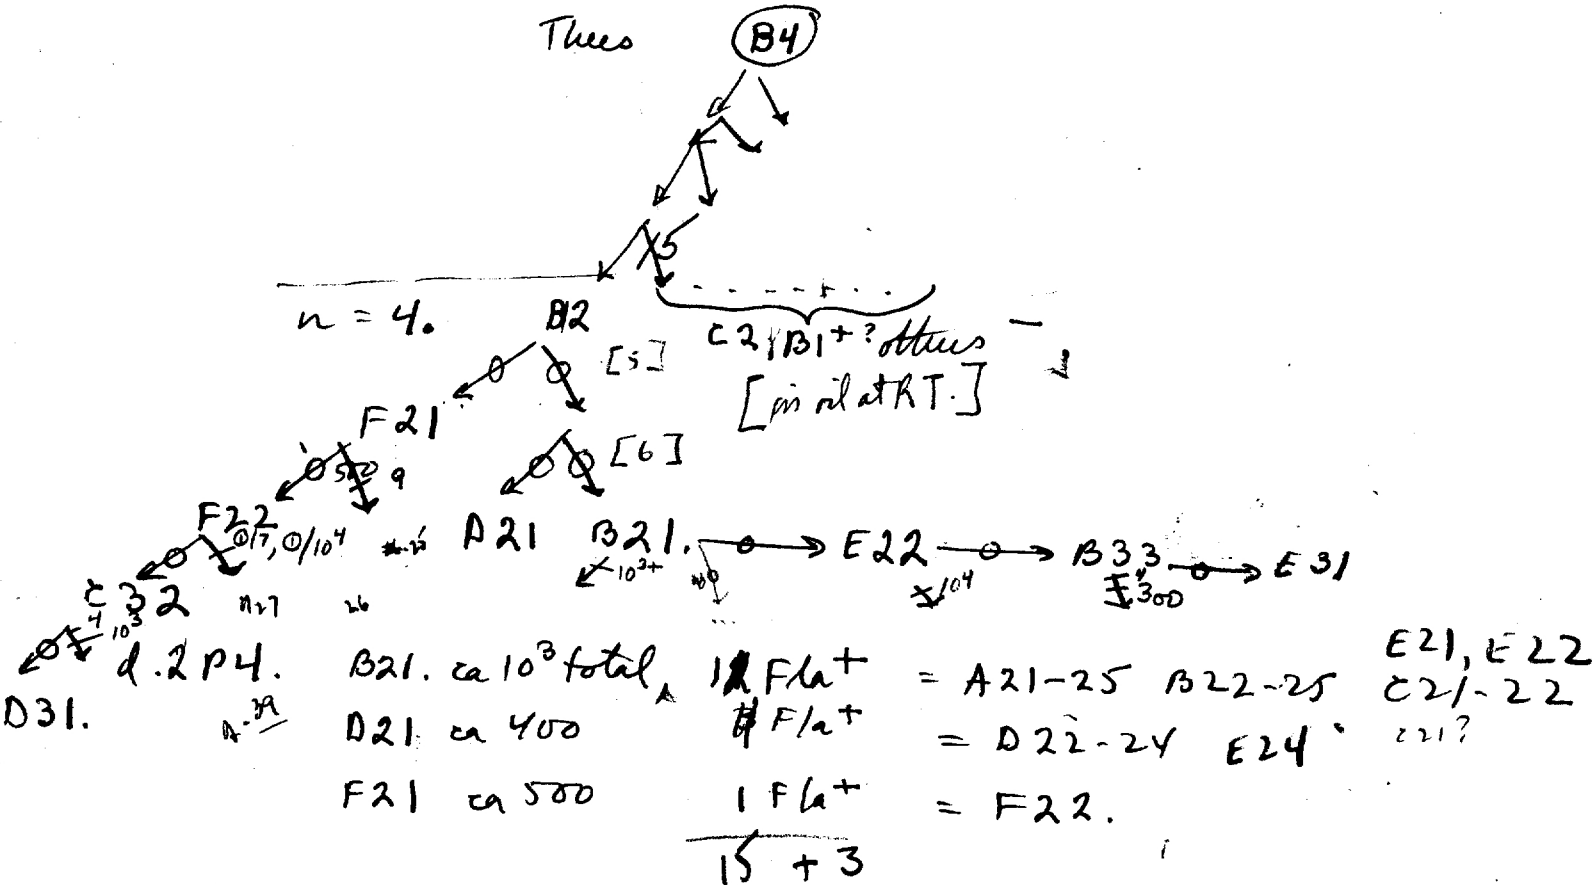 B4
5
n = 4. B12
C2, B1 + ? others
[5]
[in oil at RT.]
F21
[6]
500 9
F22
①/7, ①/10⁴
D21 B21. E22 B33 E31
10³+ 10⁴ 300
C32
4 10³
d.2P4. B21. ca 10³ total, Fla+ = A21-25 B22-25 E21, E22
C21-22
D31. D21 ca 400 Fla+ = D22-24 E24
F21 ca 500 1 Fla+ = F22.
15 + 3